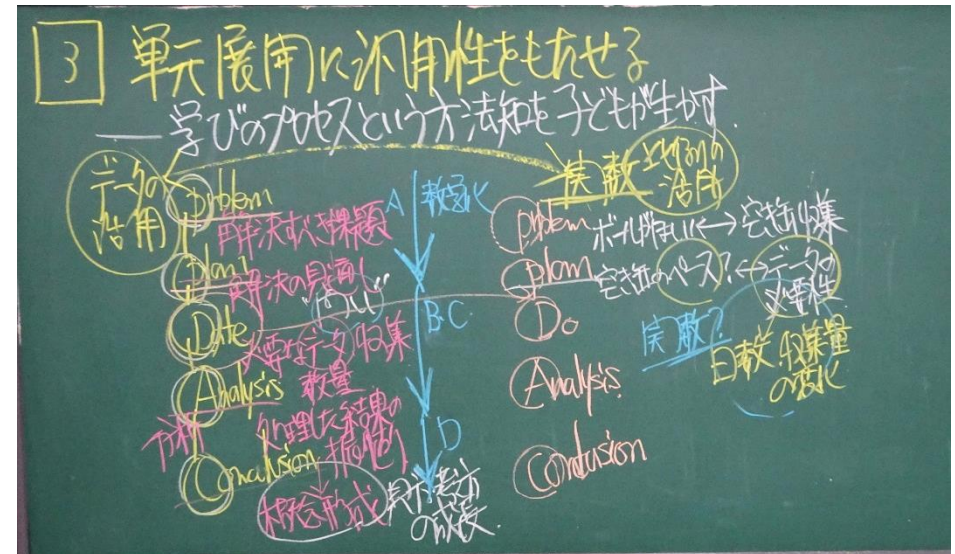 3 単元展開に汎用性をもたせる
——学びのプロセスという方法知を子どもが生かす.
データの活用
problem
解決すべき課題
plan
解決の見通し
Date
必要なデータ収集
Analysis 数量
分析 処理した結果の
Conclusion
概念形成
見方・考え方の成長.
A 数学化
B.C
D
実数
の活用
problem ボールがない ↔ 空き缶収集
plan 空き缶のペース? ↔ データの必要性
Do
実数?
日数、収集量の変化
Analysis.
Conclusion